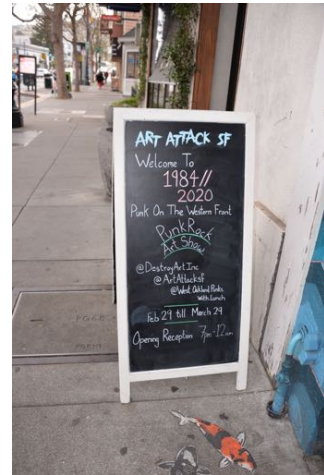 ART ATTACK SF
Welcome To
1984//
2020
Punk On The Western Front
Punk Rock
Art Show
@DestroyArtInc
@ArtAttacksf
@West Oakland Punks
with Lunch
Feb 29 till March 29
Opening Reception 7pm-12am